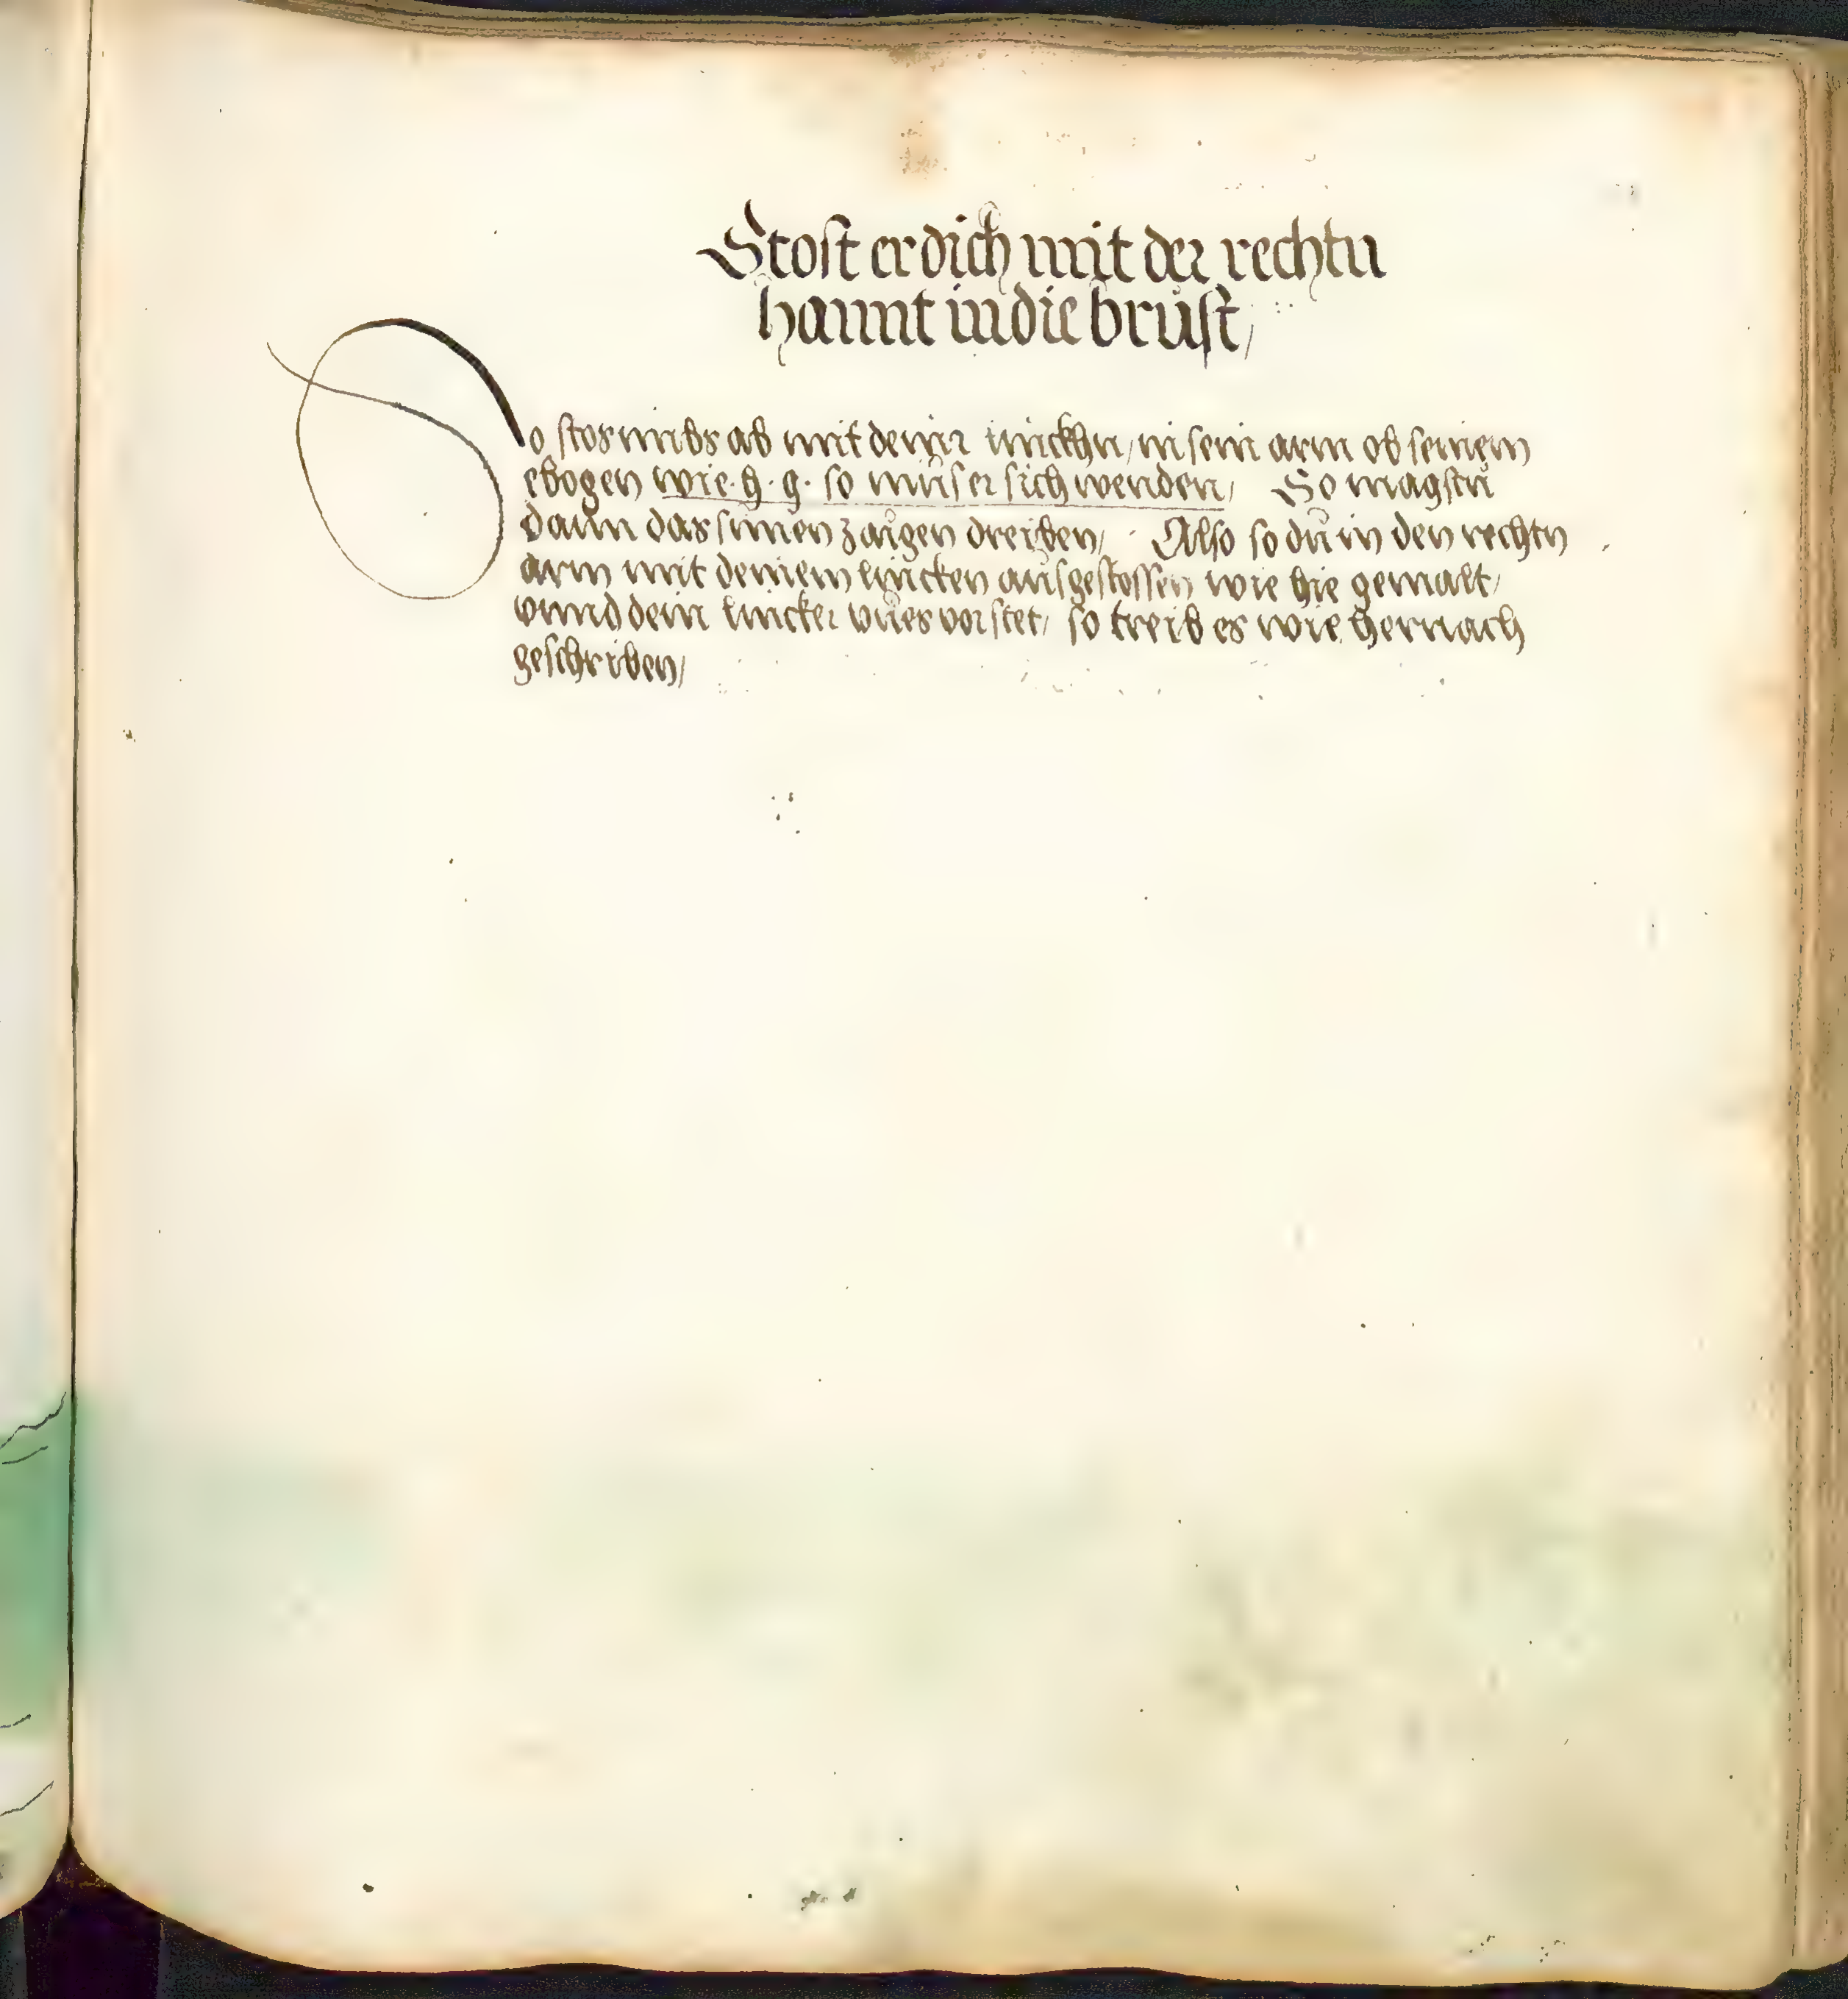 Stost er dich mit der rechtn
hannt in die brůst /
So stos imbs ab mit deinir linckhn / in sein arm ob seinem
ebogen wie · h · g · so můs er sich wenden / So magstů
dann das sinnen zaigen dreiben / Also so dů in den rechtn
arm mit deinem lincken aůsgestossen wie hie gemalt /
vnnd dein lincker vůes vor stet / so treib es wie hernach
geschriben /